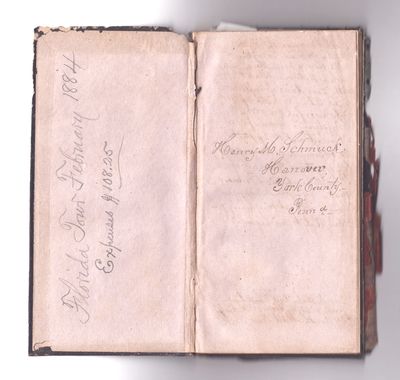 Florida Tour February 1884
Expenses $108.25
Henry M. Schmuck.
Hanover
York County
Penn a